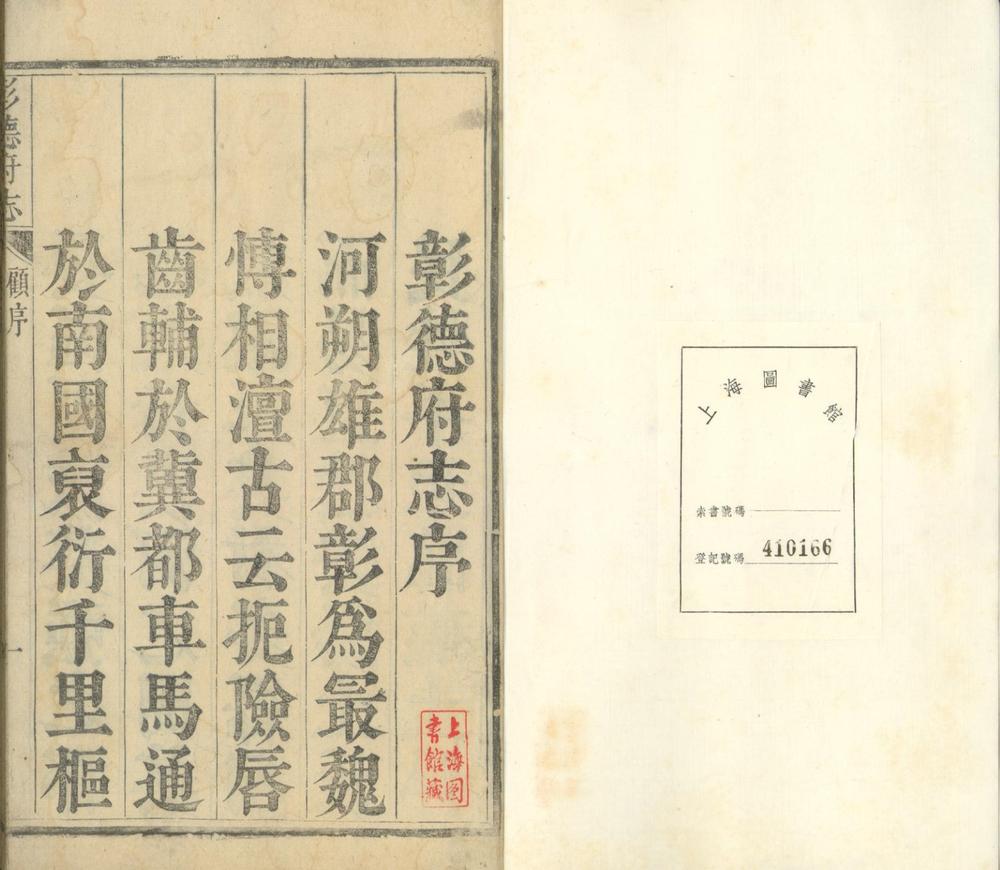 上海圖書館
索書號碼
登記號碼 410166
彰德府志序
河朔雄郡彰爲最魏
博相澶古云扼險唇
齒輔於冀都車馬通
於南國裒衍千里樞
上海图
書館藏
彰德府志
顧序
一